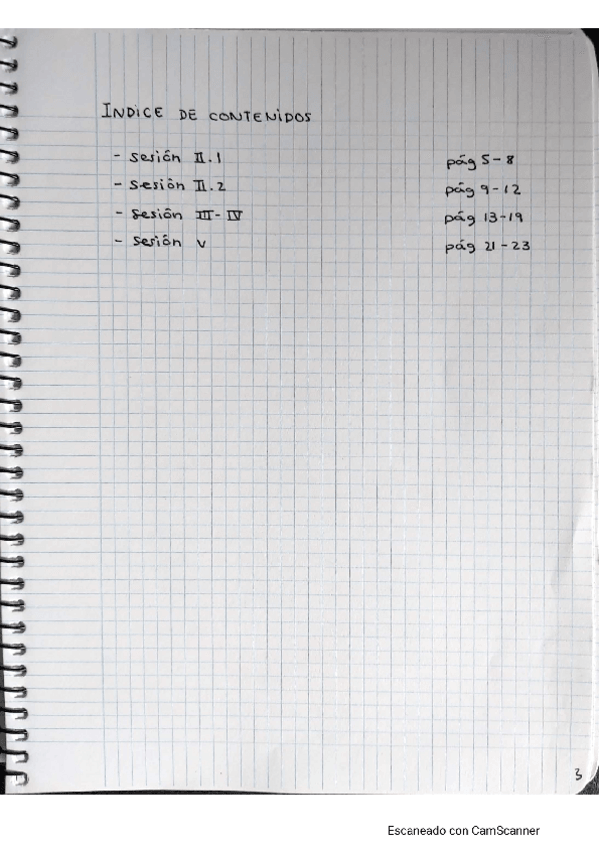 INDICE DE CONTENIDOS
- sesión II.1 pág 5-8
- sesión II.2 pág 9-12
- sesión III-IV pág 13-19
- sesión V pág 21-23
3
Escaneado con CamScanner